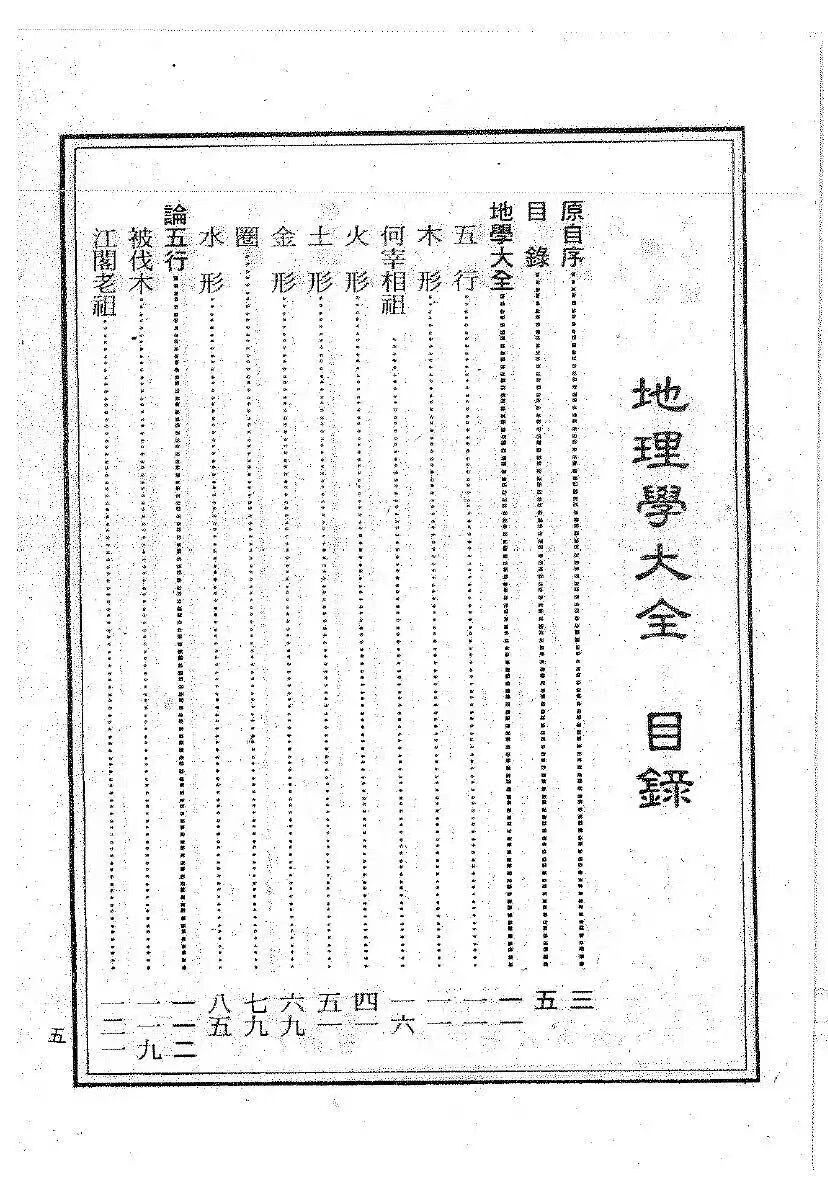 地理學大全 目錄
原自序 三
目錄 五
地學大全 一一
五行 一一
木形 一一
何宰相祖 一六
火形 四一
土形 五一
金形 六九
圈 七九
水形 八五
論五行 一一二
被伐木 一一九
江閣老祖 一二一
五